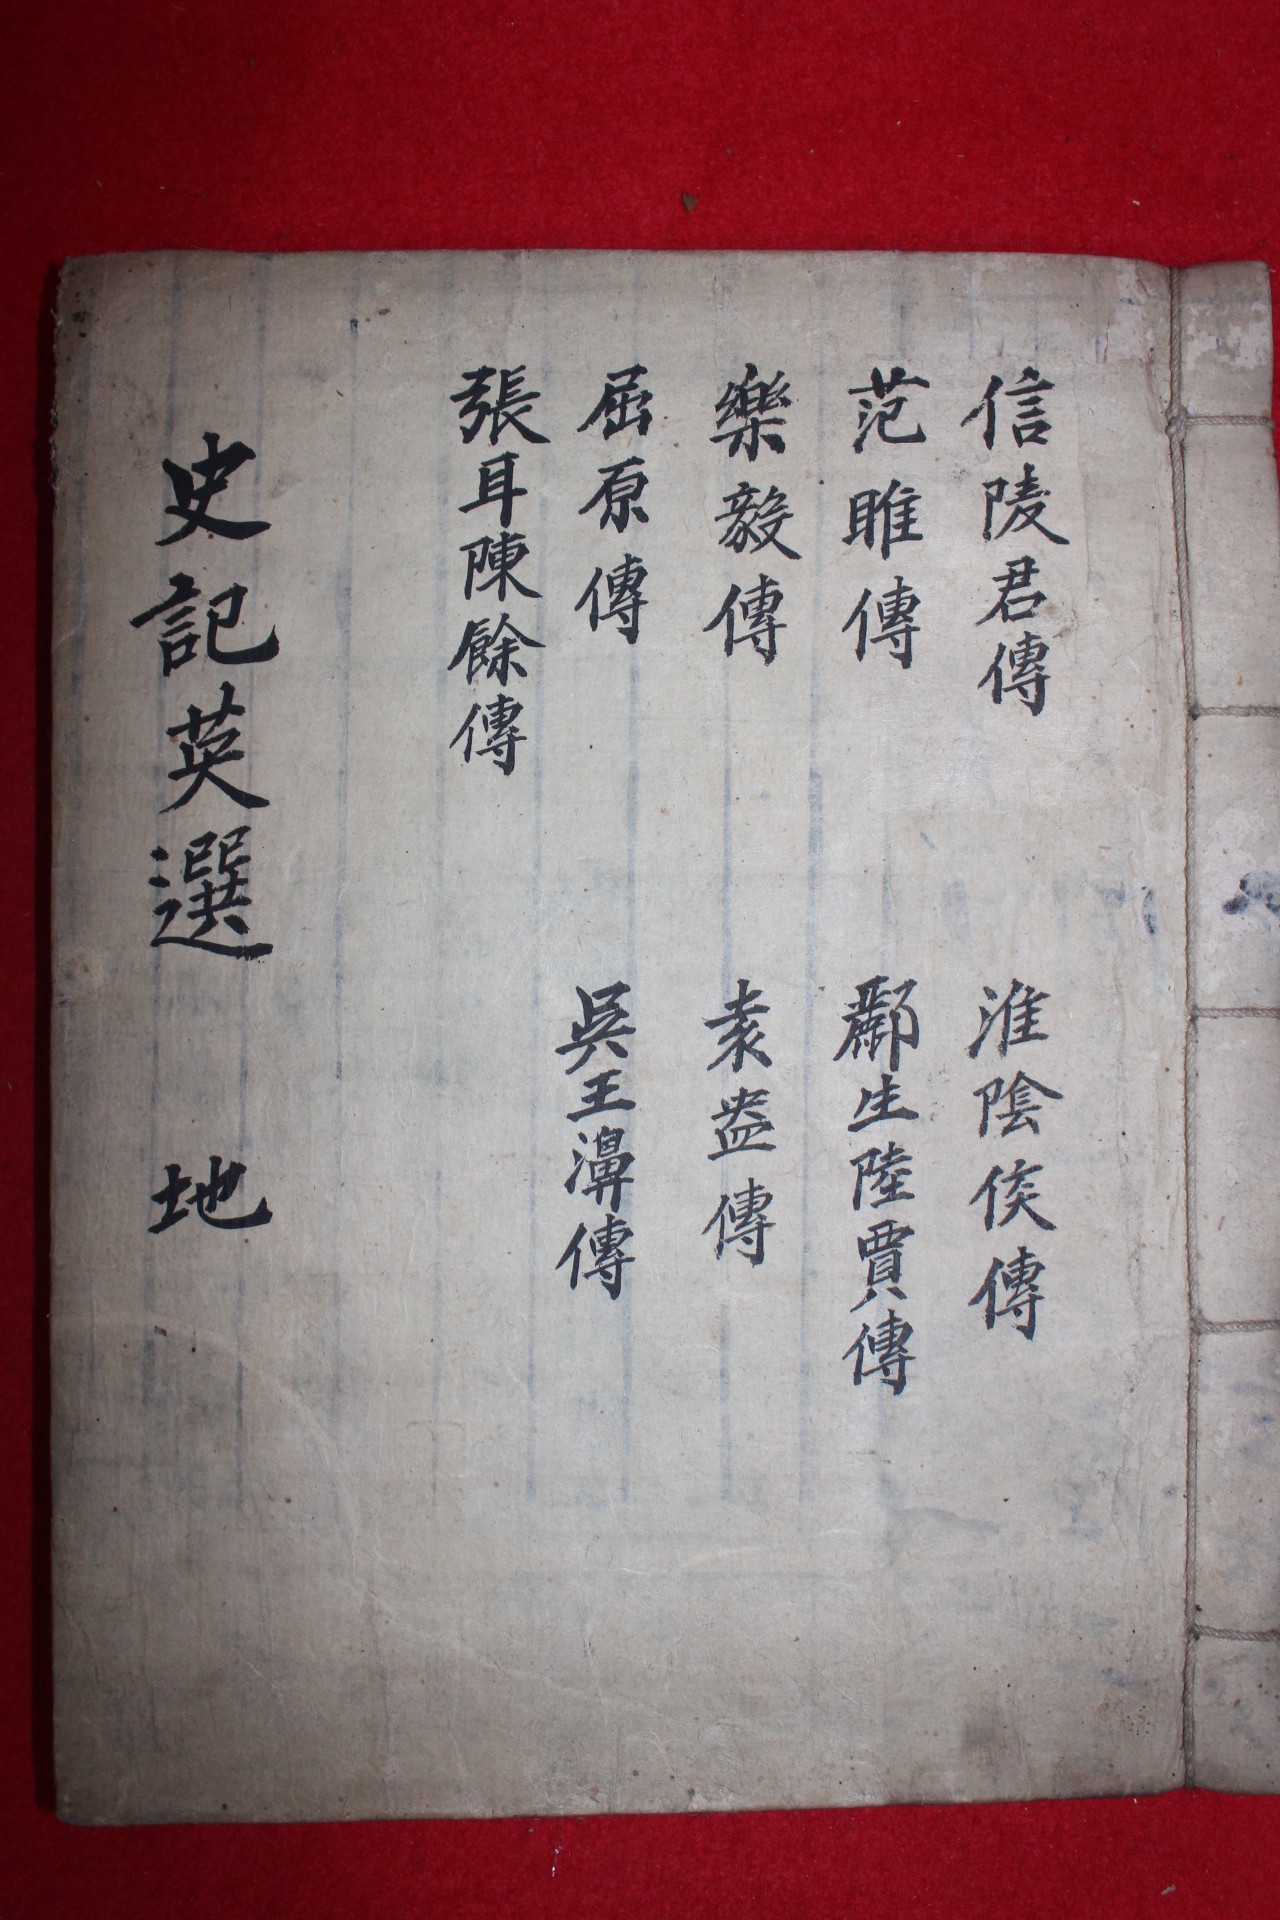 信陵君傳
范睢傳
樂毅傳
屈原傳
張耳陳餘傳
淮陰侯傳
酈生陸賈傳
袁盎傳
吳王濞傳
史記英選 地